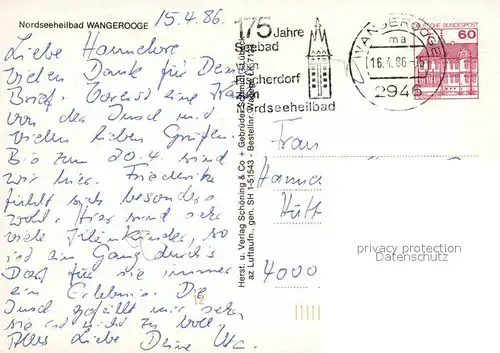 Nordseeheilbad WANGEROOGE
15.4.86.
Liebe Hannelore
Vielen Dank für Deine
Brief. Vorerst eine Karte
von der Insel und
vielen lieben Grüßen.
Bis zum 20.4. sind
wir hier. Friederike
fühlt sich besonders
wohl. Hier sind sehr
viele Kleinkinder, so
ist ein Gang durch's
Dorf für sie immer
ein Erlebnis. Die
Insel gefällt mir sehr
sie ist nicht zu voll.
Alles Liebe Deine
175 Jahre
Seebad
vom
Fischerdorf
zum
Nordseeheilbad
WANGEROOGE
ma
16.4.86-15
2946
DEUTSCHE BUNDESPOST
60
Herst. u. Verlag Schöning & Co + Gebrüder Schmidt, Lübeck
az Luftaufn., gen. SH 1-51543 - Bestellnr. Wange LK 71
Frau
Hanne
Hütt
4000
privacy protection
Datenschutz